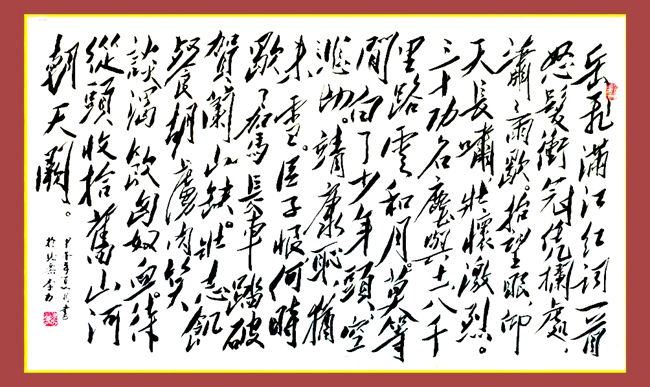 岳飛滿江紅詞一首
怒髮衝冠凭欄處，
瀟瀟雨歇。抬望眼仰
天長嘯壯懷激烈。
三十功名塵與土八千
里路雲和月。莫等
閒白了少年頭空
悲切。靖康恥猶
未雪。臣子恨何時
歇了駕長車踏破
賀蘭山缺。壯志飢
餐胡虜肉笑
談渴飲匈奴血。待
從頭收拾舊山河
朝天闕。